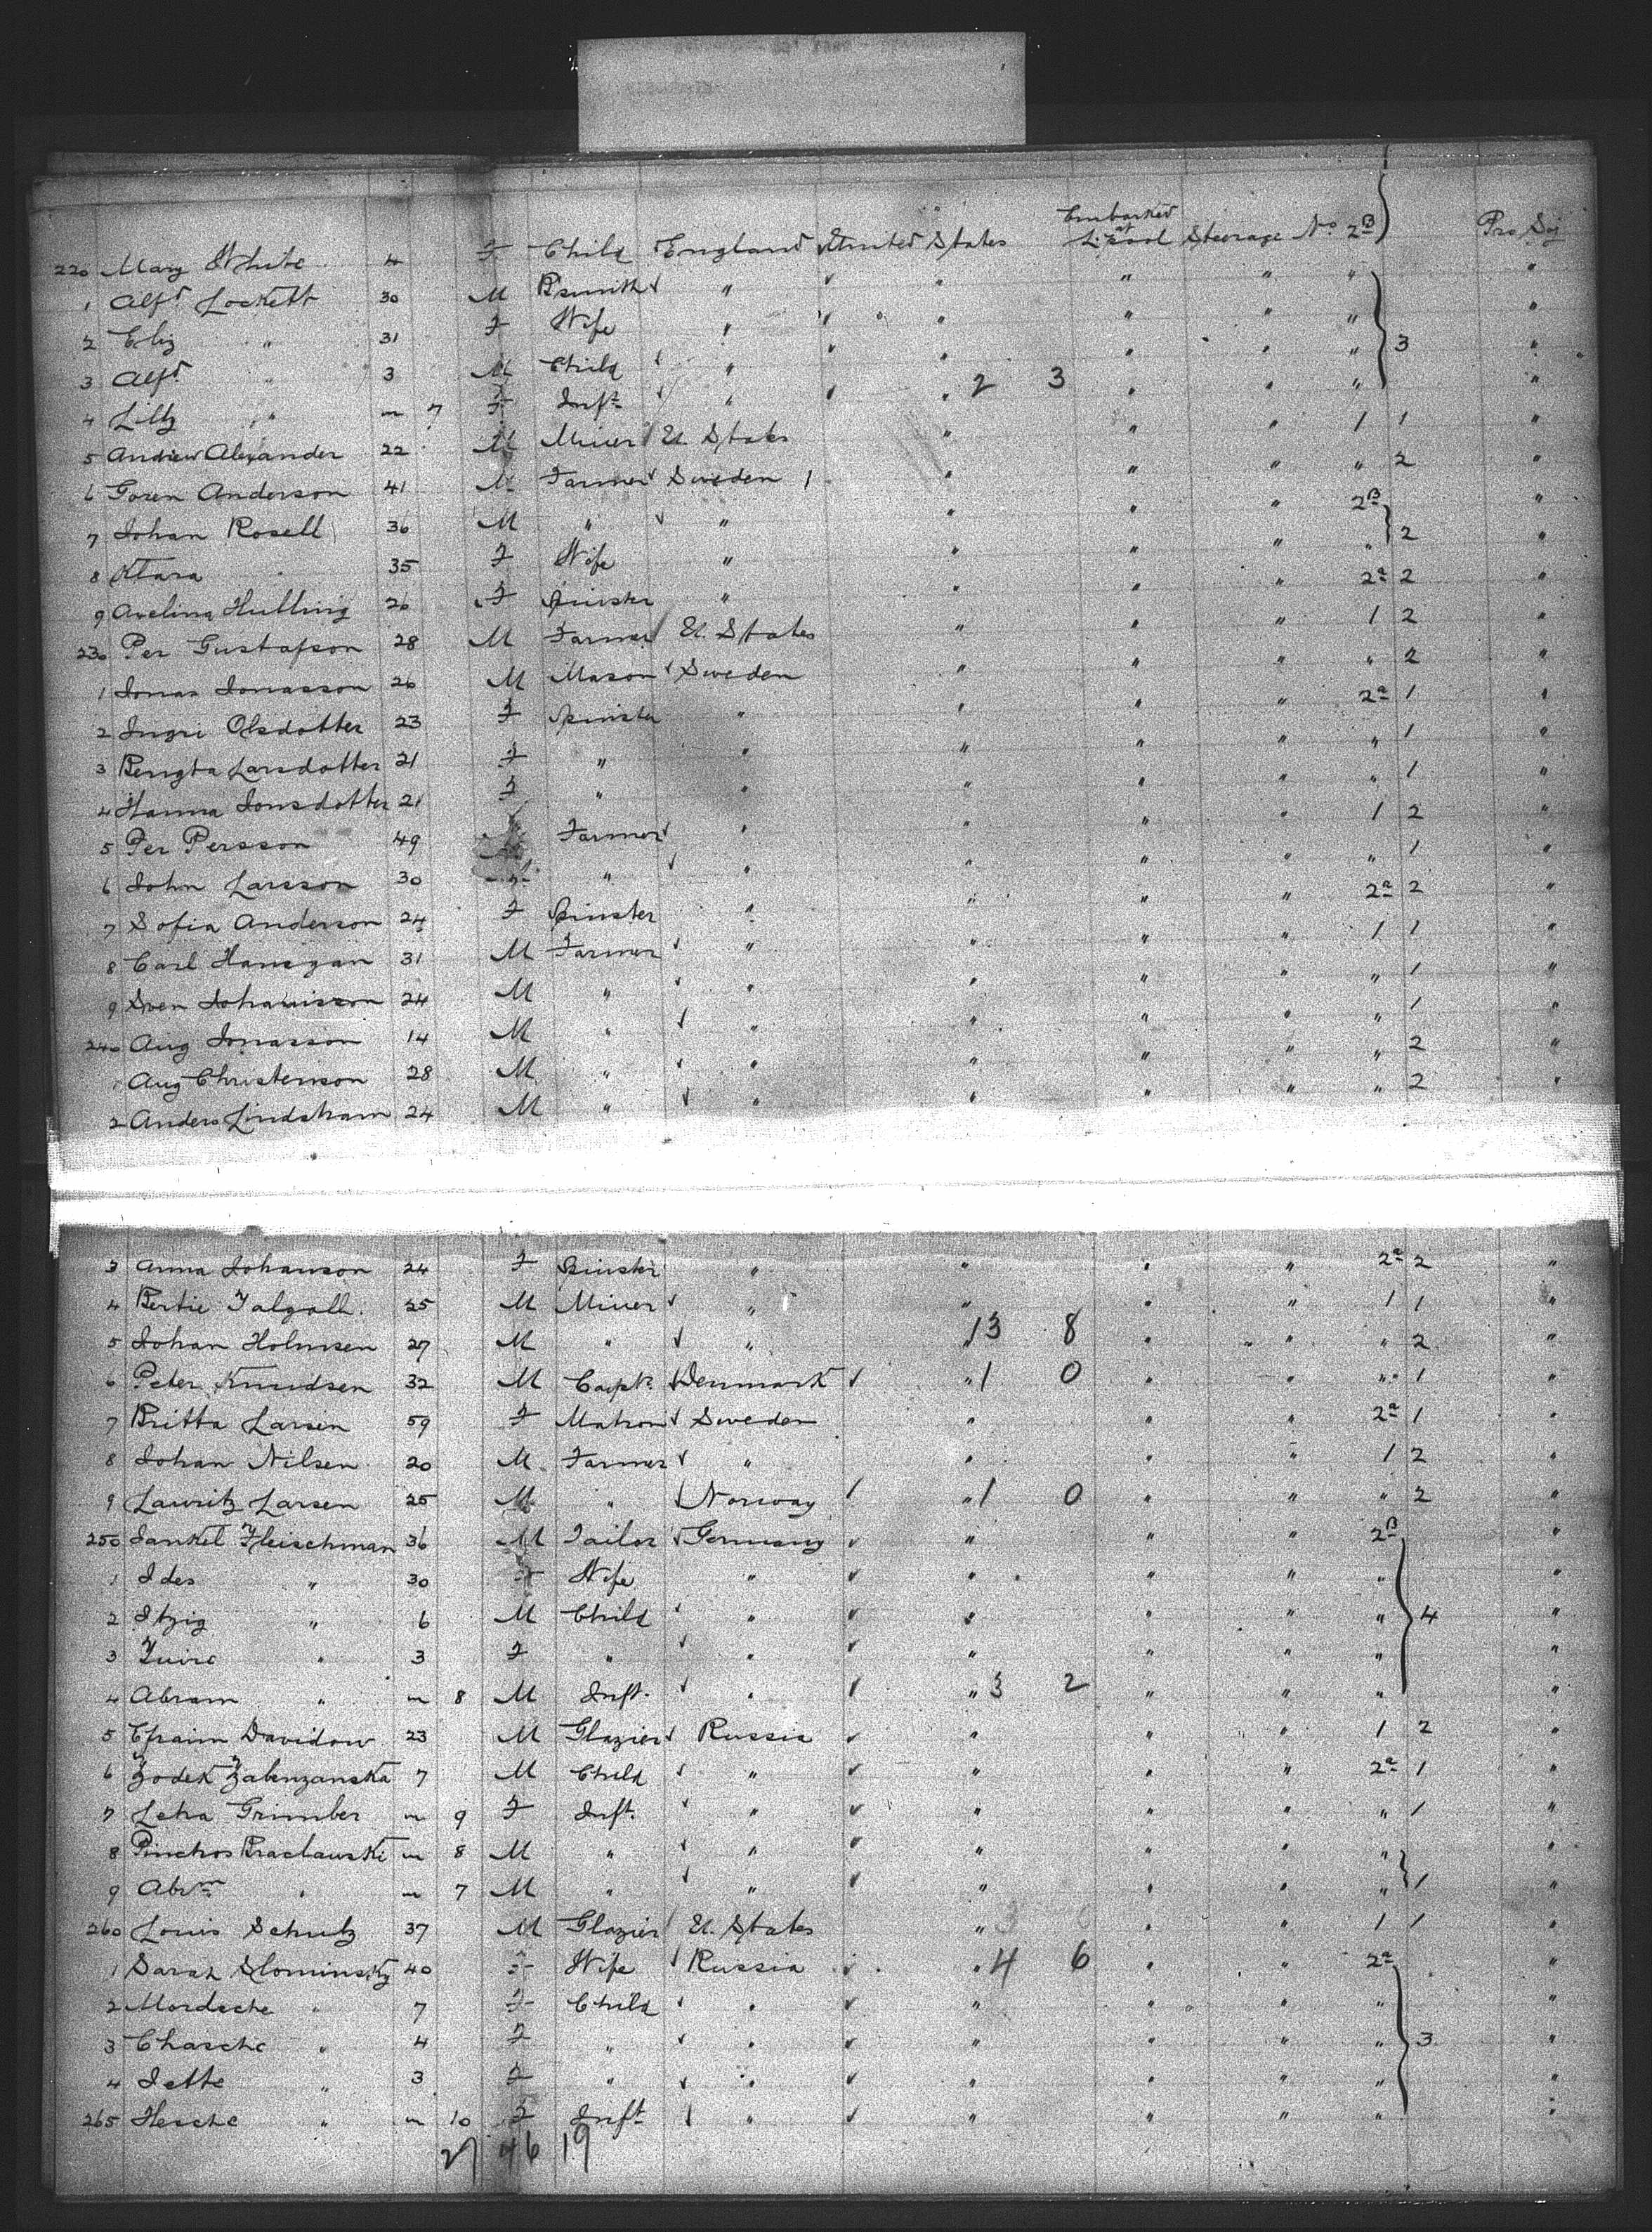 Embarked
220 Mary White 4 F Child England United States at L'pool Steerage No 2B Pro Soj
1 Alfd Lockett 30 M Bsmith " " " " " "
2 Eliz " 31 F Wife " " " " " " 3 "
3 Alfd " 3 M Child " " " " " "
4 Lilly " m 7 F Inft " " 2 3 " " " "
5 Andrew Alexander 22 M Miner U. States " " " 1 1 "
6 Goren Anderson 41 M Farmer Sweden " " " " 2 "
7 Johan Rosell 36 M " " " " " 2B "
8 Klara 35 F Wife " " " " " 2 "
9 Avelina Hulling 26 F Spinster " " " " 2a 2 "
230 Per Gustafson 28 M Farmer U. States " " " 1 2 "
1 Jonas Jonasson 26 M Mason Sweden " " " " 2 "
2 Ingri Olsdotter 23 F Spinster " " " " 2a 1 "
3 Bengta Larsdotter 21 F " " " " " " 1 "
4 Hanna Jonsdotter 21 F " " " " " " 1 "
5 Per Persson 49 M Farmer " " " " 1 2 "
6 John Larsson 30 " " " " " " 1 "
7 Sofia Anderson 24 F Spinster " " " " 2a 2 "
8 Carl Hansgan 31 M Farmer " " " " 1 1 "
9 Sven Johanisson 24 M " " " " " " 1 "
240 Aug Jonasson 14 M " " " " " " 1 "
1 Aug Christenson 28 M " " " " " " 2 "
2 Anders Lindsham 24 M " " " " " " 2 "
3 Anna Johanson 24 F Spinster " " " " 2a 2 "
4 Bertie 25 M Miner " " " " 1 1 "
5 Johan Holmsen 27 M " " " 13 8 " " " 2 "
6 Peter Knudsen 32 M Carptr Denmark " 1 0 " " " 1 "
7 Britta Larsen 59 F Matron Sweden " " " 2a 1 "
8 Johan Nilsen 20 M Farmer " " " " 1 2 "
9 Lauritz Larsen 25 M " Norway " 1 0 " " " 2 "
250 Jankel Fleischman 36 M Tailor Germany " " " 2B "
1 Ides " 30 F Wife " " " " " "
2 Itzig " 6 M Child " " " " " 4 "
3 " 3 F " " " " " " "
4 Abram " m 8 M Inft. " " 3 2 " " " "
5 Efraim Davidow 23 M Glazier Russia " " " 1 2 "
6 Zodek Zabenzanska 7 M Child " " " " 2a 1 "
7 Leha Grimber m 9 F Inft. " " " " " 1 "
8 Pinchos Braclawski m 8 M " " " " " " "
9 Abrm " m 7 M " " " " " " 1 "
260 Louis Schulz 37 M Glazier U. States " " " 1 1 "
1 Sarah Slominsky 40 F Wife Russia " 4 6 " " 2a "
2 Mordsche " 7 F Child " " " " " "
3 Chasche " 4 F " " " " " " 3 "
4 Jette " 3 F " " " " " " "
265 Hesche " m 10 F Inft " " " " " "
27 46 19